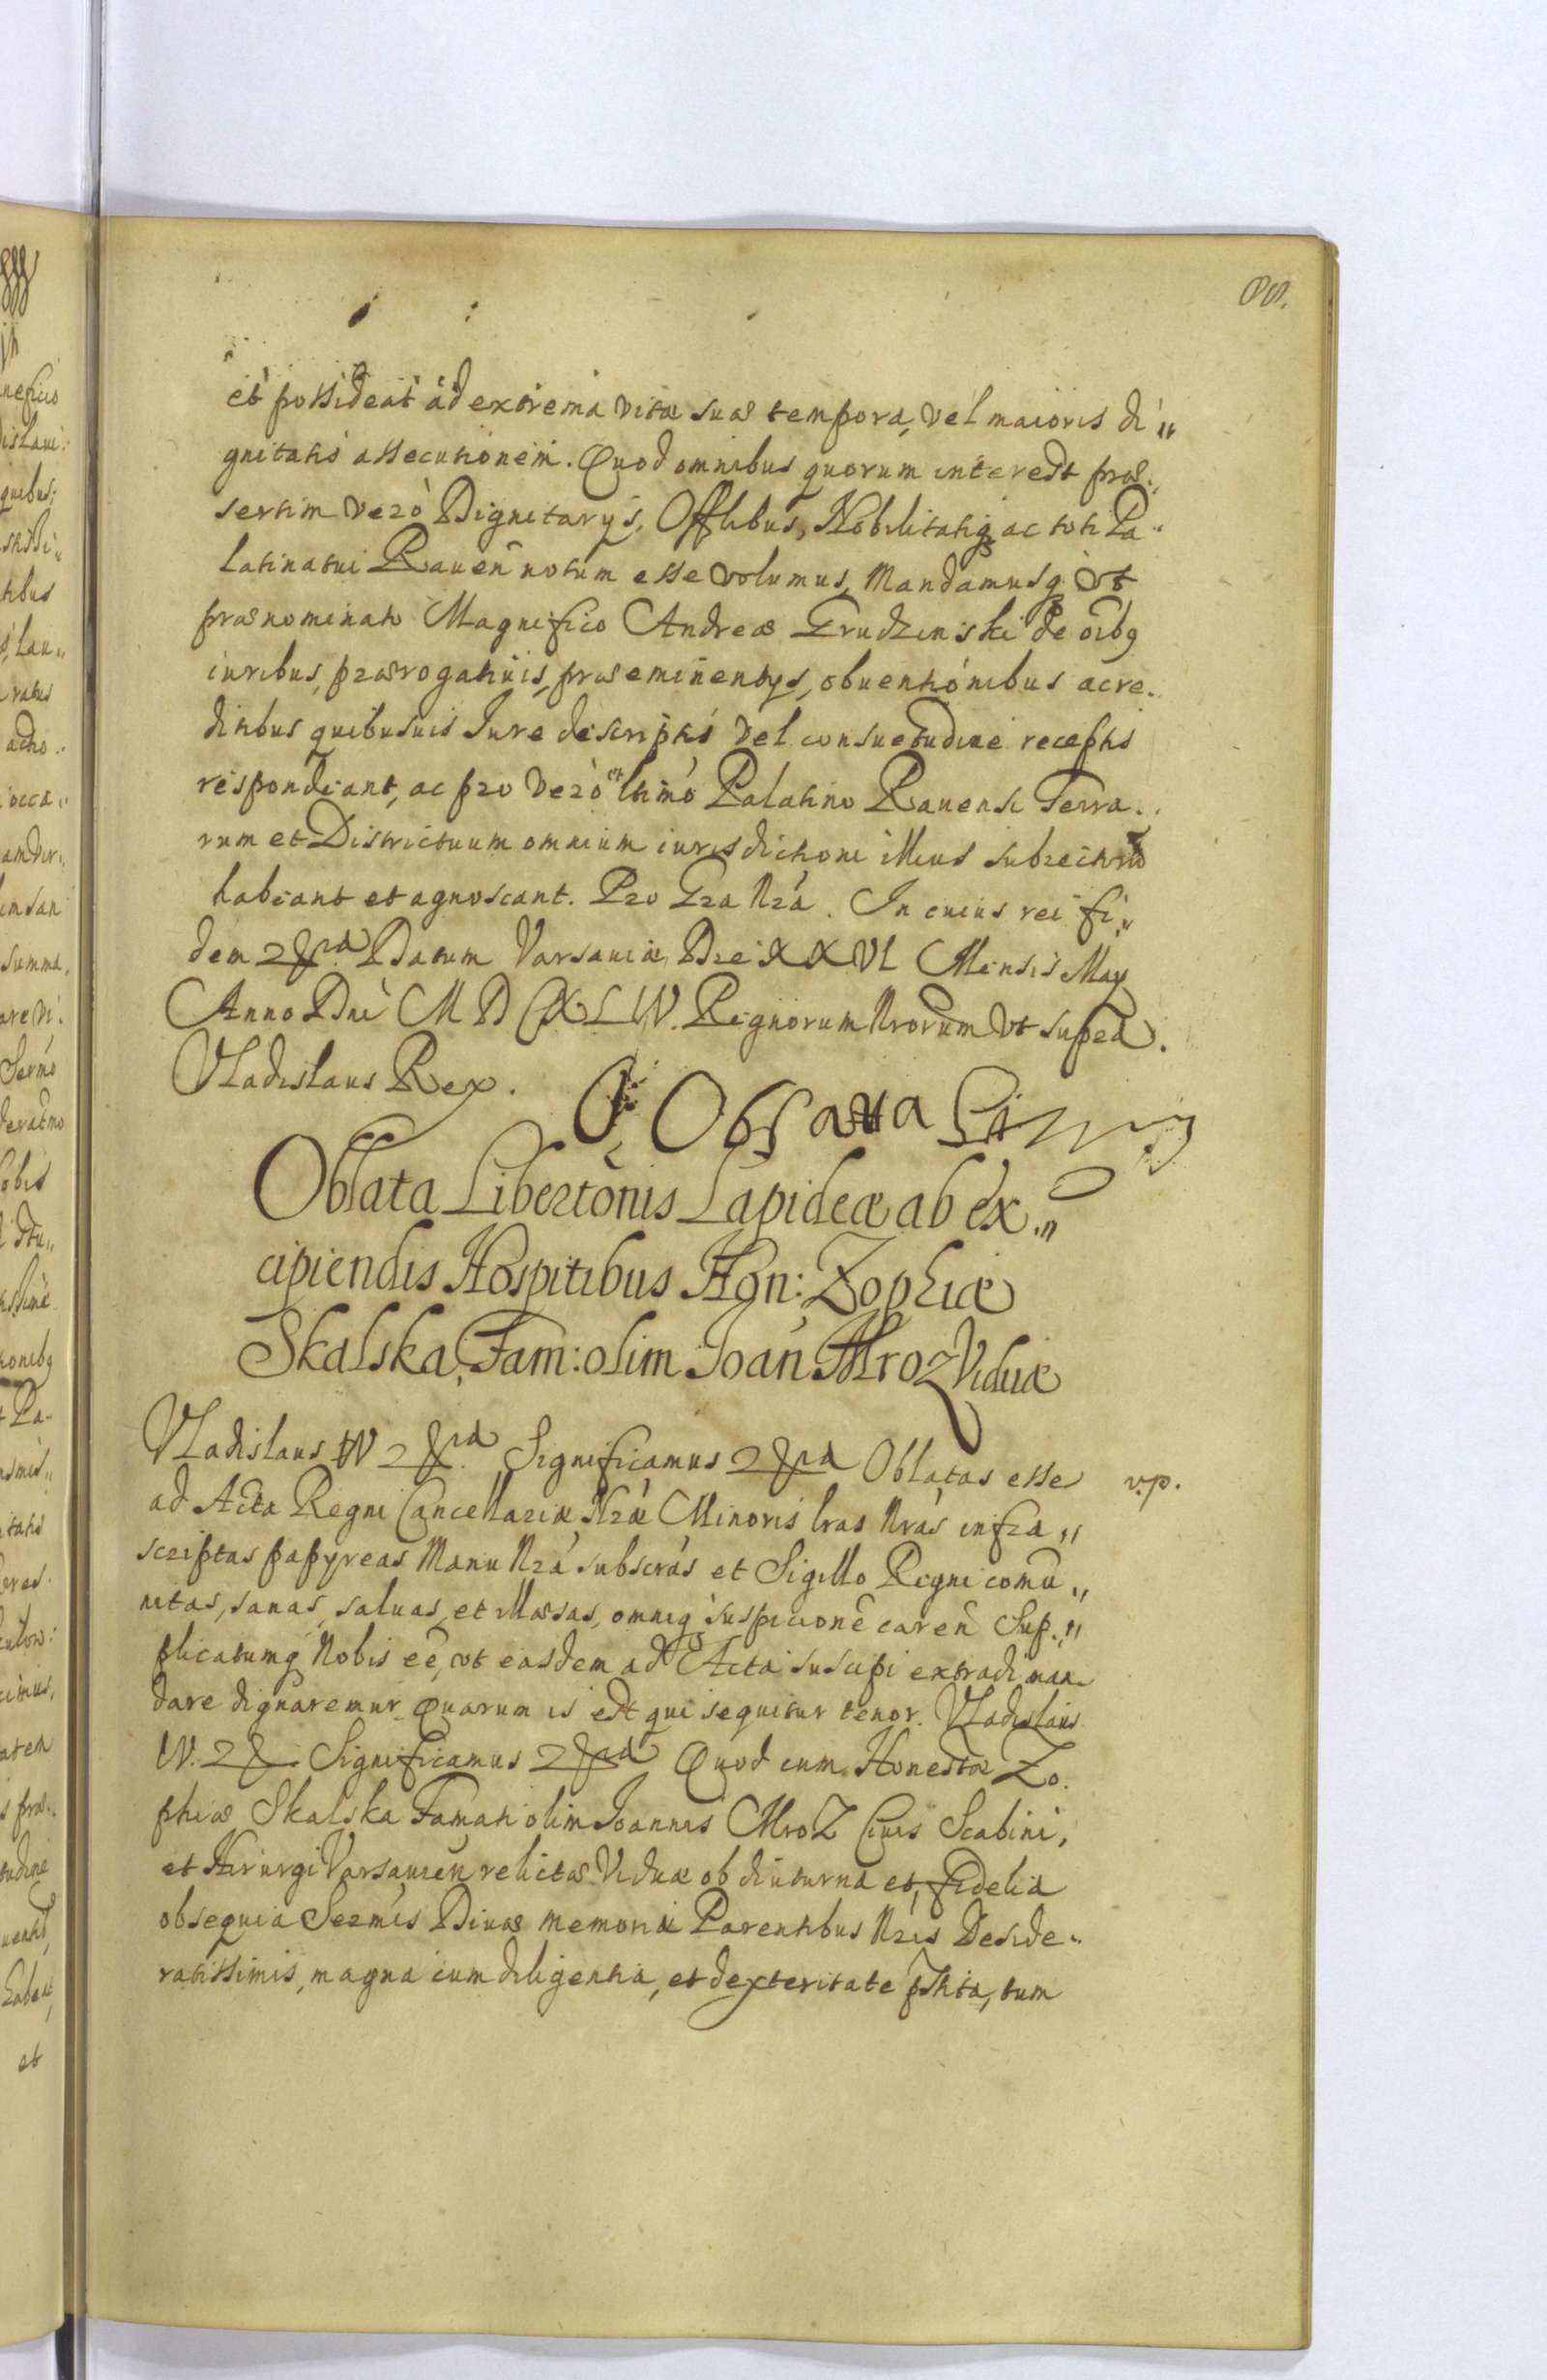 88.
et possideat ad extrema vitæ suæ tempora, vel maioris di„
gnitatis assecutionem. Quod omnibus quorum interest præ„
sertim vero Dignitarys, Offlibus, Nobilitatiq ac toti Pa„
latinatui Rauen̄ notum esse volumus, Mandamusq vt
prænominato Magnifico Andreæ Grudzinski de oibq
iuribus, prærogatiuis, præeminentys, obuentionibus ac re„
ditibus quibusuis Jure descriptis vel consuetudine receptis
respondeant, ac pro vero et ltimo Palatino Rauensi Terra„
rum et Districtuum omnium iurisdictioni illius subiectorum
habeant et agnoscant. Pro Gra Nra. In cuius rei fi„
dem &ra Datum Varsauiæ Die XXVI Mensis May
Anno Dni MDCXLIV. Regnorum Nrorum vt supra.
Vladislaus Rex.
Oblata Libertōnis Lapideæ ab ex„
cipiendis Hospitibus Hon: Zophiæ
Skalska, Fam: olim Joan Mroz Viduæ
Vladislaus IV &ra. Significamus &ra Oblatas esse
v.p.
ad Acta Regni Cancellariæ Nræ Minoris lras Nras infra„
scriptas papyreas Manu Nra subscras et Sigillo Regni comū„
nitas, sanas, saluas, et illæsas, omniq suspicionē caren̄ Sup„
plicatumq Nobis eē, vt easdem ad Acta suscipi extradi man„
dare dignaremur Quarum is est qui sequitur tenor. Vladislaus
IV. & Significamus &ra Quod cum Honestæ Zo„
phiæ Skalska Famati olim Joannis Mroz Ciuis Scabini,
et Hirurgi Varsauien̄ relictæ Viduæ ob diuturna et fidelia
obsequia Sermis Diuæ memoriæ Parentibus Nris Deside„
ratissimis, magna cum diligentia, et dexteritate pstita, tum